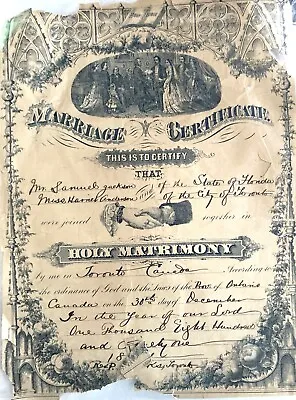 MARRIAGE CERTIFICATE.
THIS IS TO CERTIFY
THAT
Mr Samuel Jackson of the State of Florida
Miss Harriet Anderson and of the City of Toronto
were joined together in
HOLY MATRIMONY
by me in Toronto Canada According to
the ordinance of God and the laws of the Prov. of Ontario
Canada on the 30th day of December
In the Year of our Lord
One Thousand Eight Hundred
and Ninety one
18